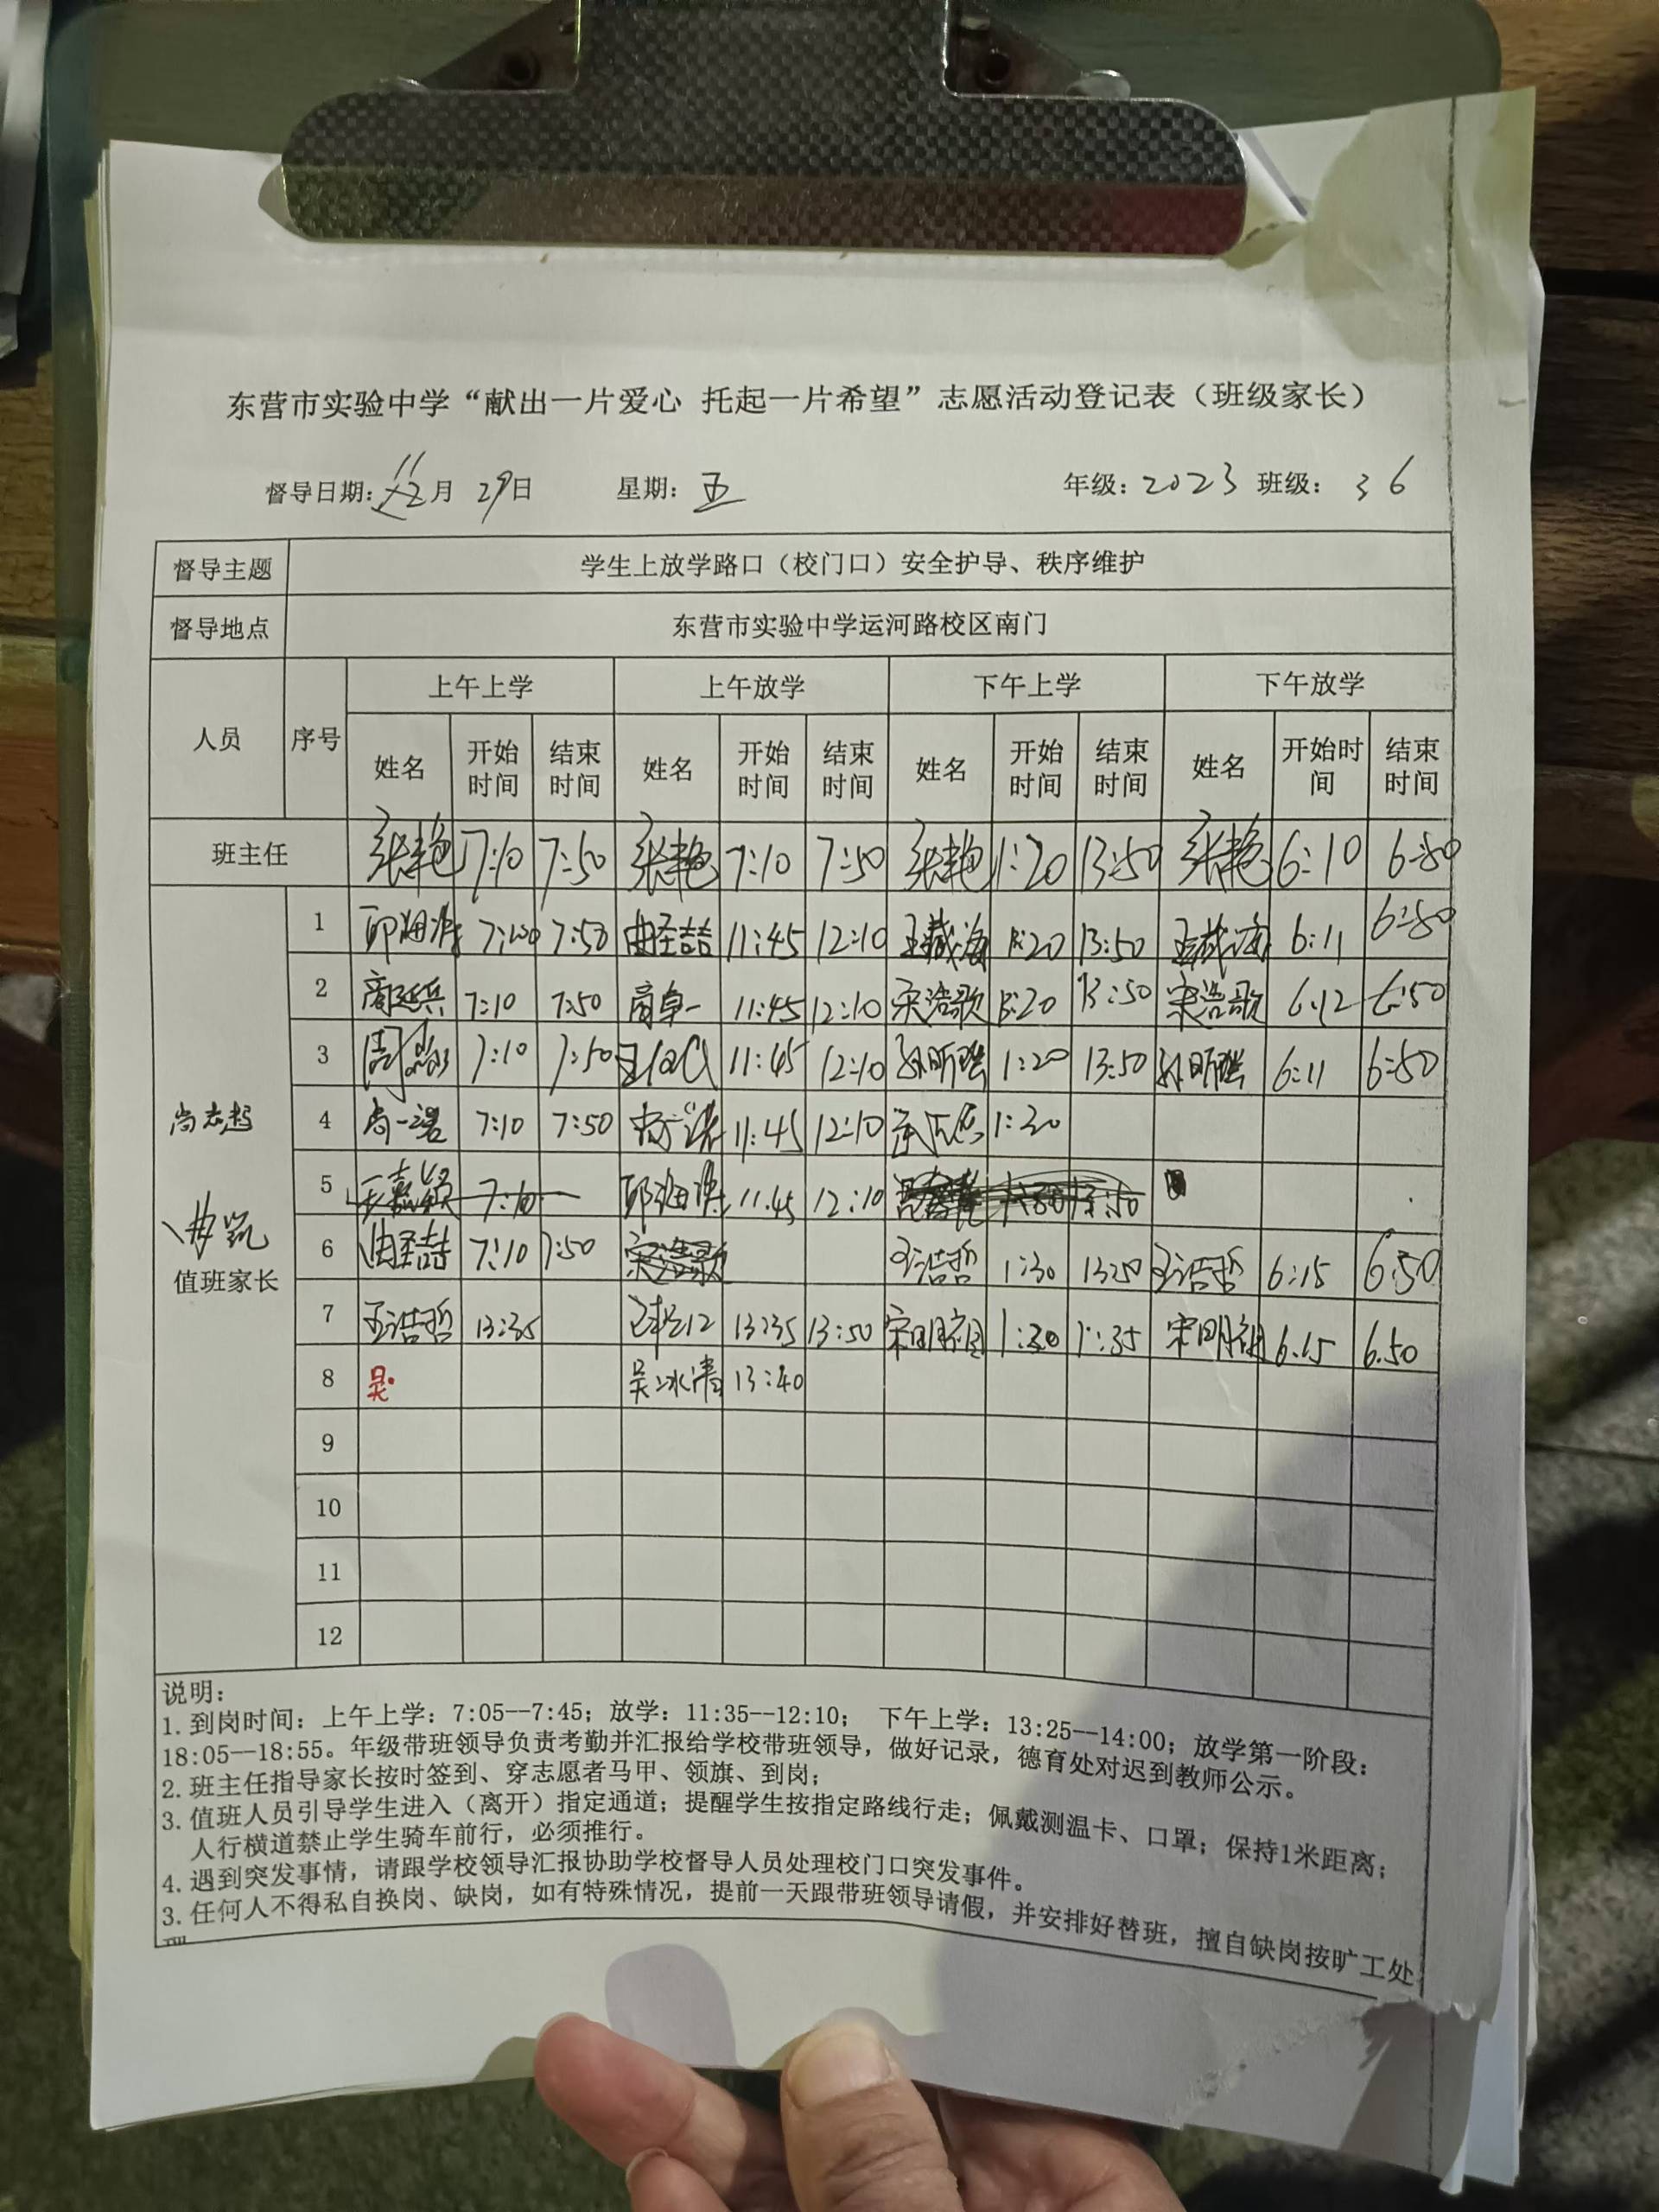 东营市实验中学“献出一片爱心 托起一片希望”志愿活动登记表（班级家长）
督导日期: 11月 29日 星期: 五 年级: 2023 班级: 36
督导主题 学生上放学路口（校门口）安全护导、秩序维护
督导地点 东营市实验中学运河路校区南门
人员 序号 上午上学 上午放学 下午上学 下午放学
姓名 开始时间 结束时间 姓名 开始时间 结束时间 姓名 开始时间 结束时间 姓名 开始时间 结束时间
班主任 张艳 7:10 7:50 张艳 7:10 7:50 张艳 1:20 13:50 张艳 6:10 6:50
1 7:50 由圣喆 11:45 12:10 王藏海 1:20 13:50 王藏海 6:11 6:50
2 商延兵 7:10 7:50 商卓一 11:45 12:10 宋浩歌 1:20 13:50 宋浩歌 6:12 6:50
3 7:10 7:50 11:45 12:10 1:20 13:50 6:11 6:50
尚志超 4 尚一诺 7:10 7:50 11:45 12:10 1:30
5 王嘉颖 7:10 11:45 12:10
曲凯 6 由圣喆 7:10 7:50 宋浩歌 王浩哲 1:30 1350 王浩哲 6:15 6:50
值班家长
7 王浩哲 13:35 13:35 13:50 宋明朗 1:30 1:35 宋明朗 6.15 6.50
8 吴 吴冰清 13:40
9
10
11
12
说明：
1. 到岗时间：上午上学：7:05--7:45；放学：11:35--12:10； 下午上学：13:25--14:00；放学第一阶段：
18:05--18:55。年级带班领导负责考勤并汇报给学校带班领导，做好记录，德育处对迟到教师公示。
2. 班主任指导家长按时签到、穿志愿者马甲、领旗、到岗；
3. 值班人员引导学生进入（离开）指定通道；提醒学生按指定路线行走；佩戴测温卡、口罩；保持1米距离；
人行横道禁止学生骑车前行，必须推行。
4. 遇到突发事情，请跟学校领导汇报协助学校督导人员处理校门口突发事件。
3. 任何人不得私自换岗、缺岗，如有特殊情况，提前一天跟带班领导请假，并安排好替班，擅自缺岗按旷工处